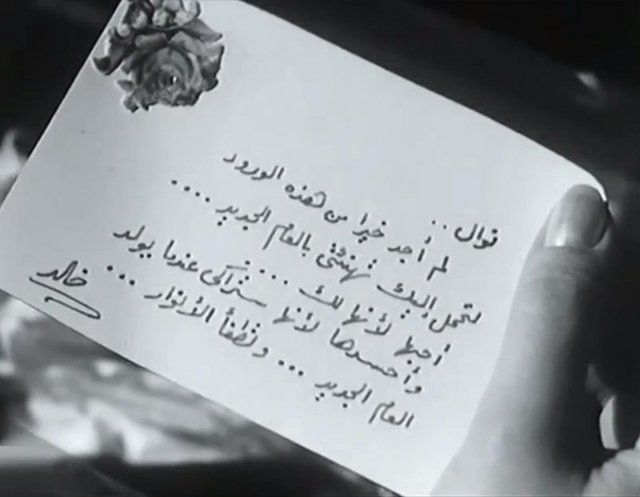 نوال ..
لم أجد خيرا من هذه الورود
لتحمل إليك تهنئتى بالعام الجديد ....
أحبها لأنها لك ....
وأحسدها لأنها ستراكى عندما يولد
العام الجديد ... وتطفأ الأنوار ...
خالد